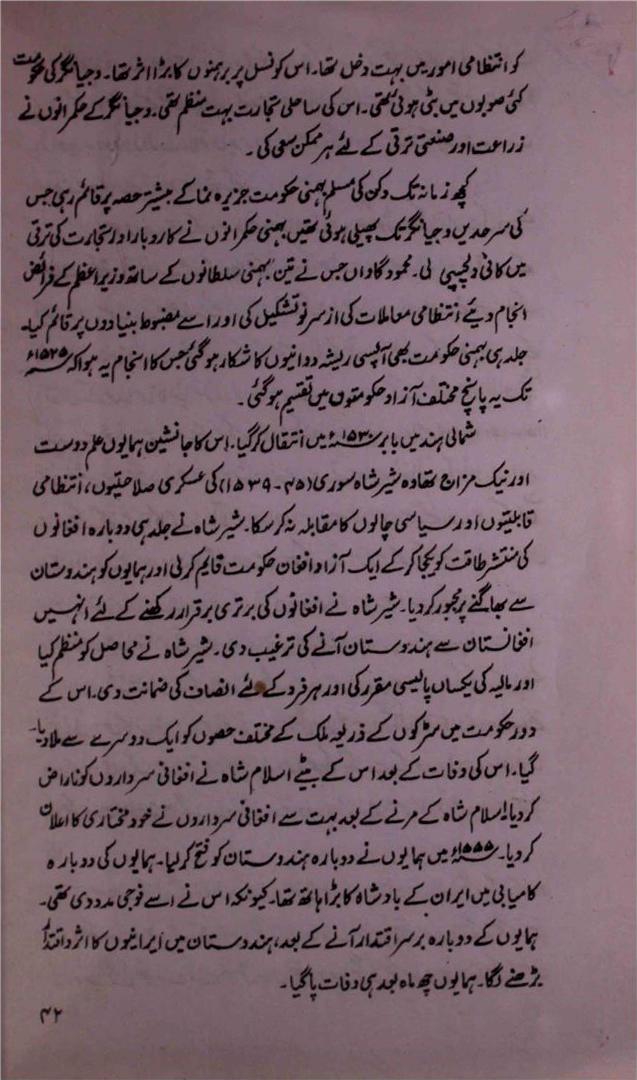 کو انتظامی امور میں بہت دخل تھا۔ اس کونسل پر برہمنوں کا بڑا اثر تھا۔ وجیانگر کی حکومت
کئی صوبوں میں بٹی ہوئی تھی۔ اس کی ساحلی تجارت بہت منظم تھی۔ وجیانگر کے حکمرانوں نے
زراعت اور صنعتی ترقی کے لئے ہر ممکن سعی کی۔
کچھ زمانہ تک دکن کی مسلم بہمنی حکومت جزیرہ نما کے بیشتر حصہ پر قائم رہی جس
کی سرحدیں وجیانگر تک پھیلی ہوئی تھیں بہمنی حکمرانوں نے کاروبار اور تجارت کی ترقی
میں کافی دلچسپی لی۔ محمود گاواں جس نے تین بہمنی سلطانوں کے ساتھ وزیر اعظم کے فرائض
انجام دیئے انتظامی معاملات کی از سر نو تشکیل کی اور اسے مضبوط بنیادوں پر قائم کیا۔
جلد ہی بہمنی حکومت بھی آپسی ریشہ دوانیوں کا شکار ہو گئی جس کا انجام یہ ہوا کہ ۱۵۲۵ء
تک یہ پانچ مختلف آزاد حکومتوں میں تقسیم ہو گئی۔
شمالی ہند میں بابر ۱۵۳۰ء میں انتقال کر گیا۔ اس کا جانشین ہمایوں علم دوست
اور نیک مزاج تھا وہ شیر شاہ سوری (۴۵-۱۵۳۹) کی عسکری صلاحیتوں، انتظامی
قابلیتوں اور سیاسی چالوں کا مقابلہ نہ کر سکا۔ شیر شاہ نے جلد ہی دوبارہ افغانوں
کی منتشر طاقت کو یکجا کر کے ایک آزاد افغان حکومت قایم کر لی اور ہمایوں کو ہندوستان
سے بھاگنے پر مجبور کر دیا۔ شیر شاہ نے افغانوں کی برتری برقرار رکھنے کے لئے انہیں
افغانستان سے ہندوستان آنے کی ترغیب دی۔ شیر شاہ نے محاصل کو منظم کیا
اور مالیہ کی یکساں پالیسی مقرر کی اور ہر فرد کے لئے انصاف کی ضمانت دی۔ اس کے
دور حکومت میں سڑکوں کے ذریعہ ملک کے مختلف حصوں کو ایک دوسرے سے ملا دیا۔
گیا۔ اس کی وفات کے بعد اس کے بیٹے اسلام شاہ نے افغانی سرداروں کو ناراض
کر دیا! اسلام شاہ کے مرنے کے بعد بہت سے افغانی سرداروں نے خود مختاری کا اعلان
کر دیا۔ ۱۵۵۵ء میں ہمایوں نے دوبارہ ہندوستان کو فتح کر لیا۔ ہمایوں کی دوبارہ
کامیابی میں ایران کے بادشاہ کا بڑا ہاتھ تھا۔ کیونکہ اس نے اسے فوجی مدد دی تھی۔
ہمایوں کے دوبارہ بر سر اقتدار آنے کے بعد، ہندوستان میں ایرانیوں کا اثر و اقتدار
بڑھنے لگا۔ ہمایوں چھ ماہ بعد ہی وفات پا گیا۔
۴۲